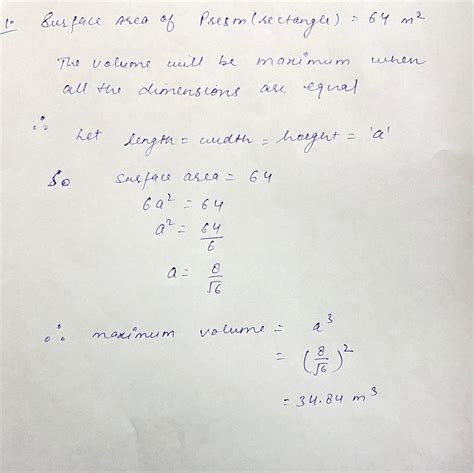 1. Surface Area of Presm (rectangle) = 64 m²
The volume will be maximum when
all the dimensions are equal
∴ Let length = width = height = 'a'
So surface area = 64
6a² = 64
a² = 64/6
a = 8/√6
∴ maximum volume = a³
= (8/√6)²
= 34.84 m³